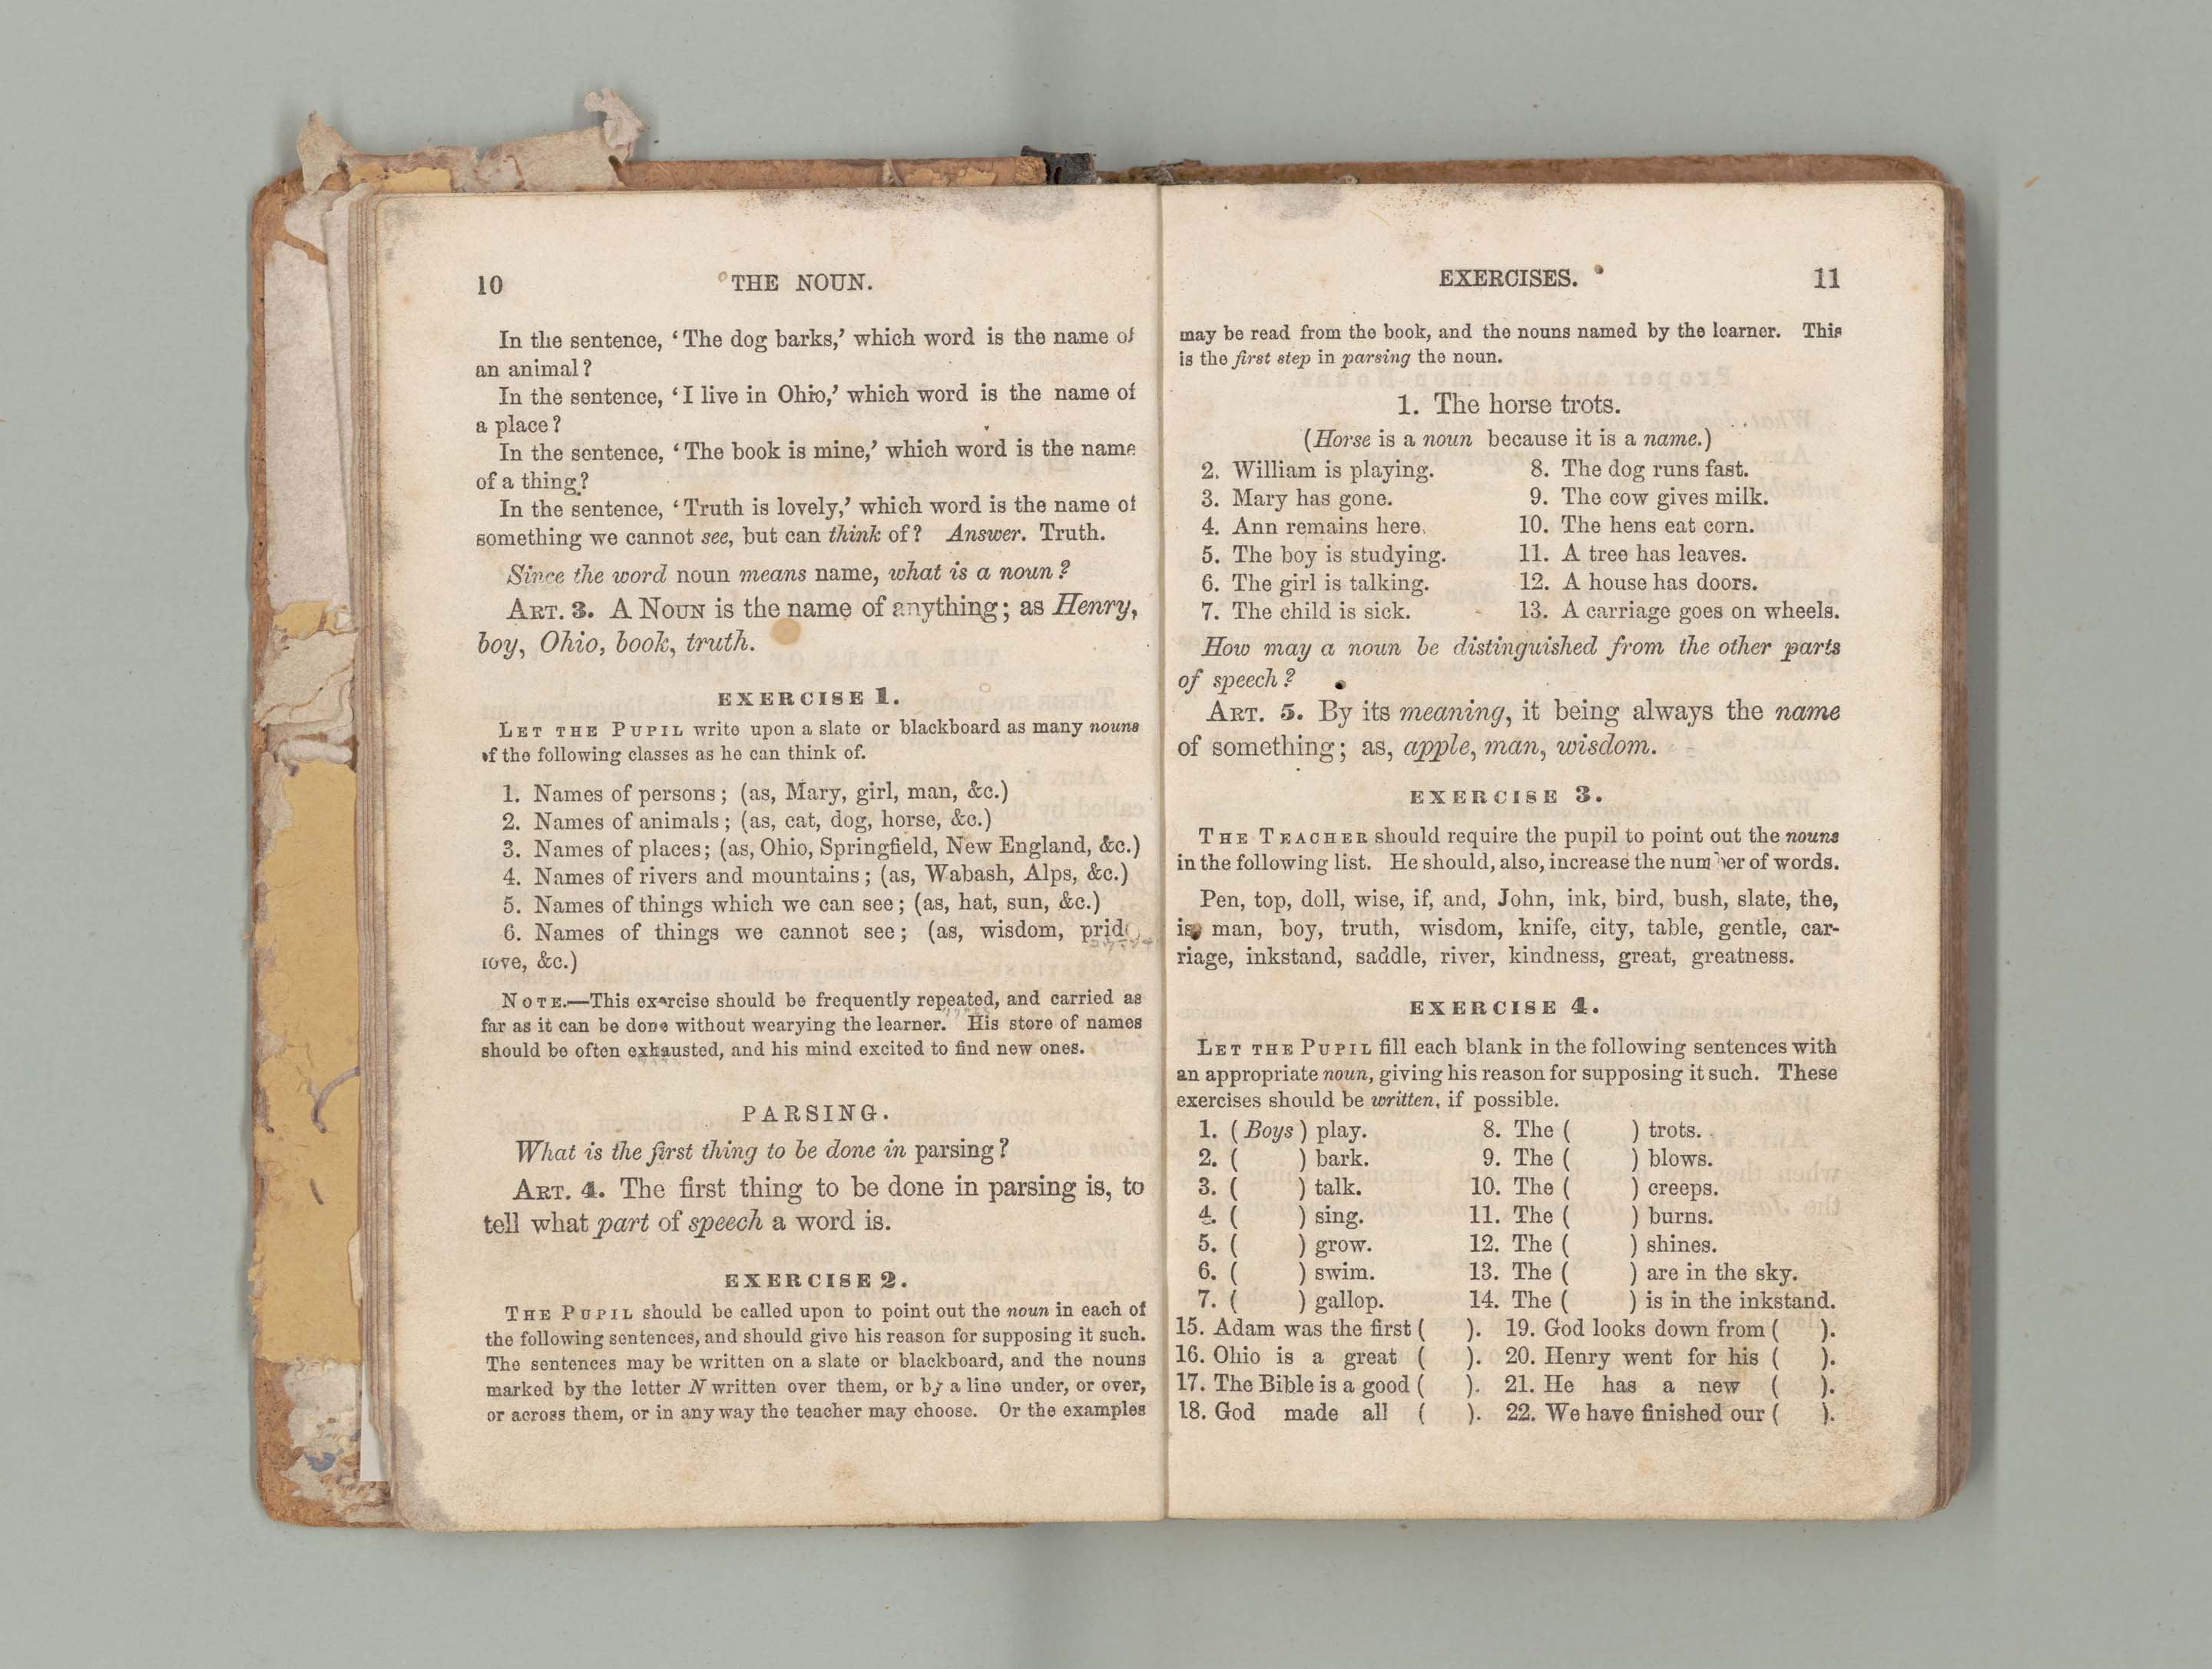 10 THE NOUN.
In the sentence, ‘The dog barks,’ which word is the name of
an animal?
In the sentence, ‘I live in Ohio,’ which word is the name of
a place?
In the sentence, ‘The book is mine,’ which word is the name
of a thing?
In the sentence, ‘Truth is lovely,’ which word is the name of
something we cannot see, but can think of? Answer. Truth.
Since the word noun means name, what is a noun?
ART. 3. A NOUN is the name of anything; as Henry,
boy, Ohio, book, truth.
EXERCISE 1.
LET THE PUPIL write upon a slate or blackboard as many nouns
of the following classes as he can think of.
1. Names of persons; (as, Mary, girl, man, &c.)
2. Names of animals; (as, cat, dog, horse, &c.)
3. Names of places; (as, Ohio, Springfield, New England, &c.)
4. Names of rivers and mountains; (as, Wabash, Alps, &c.)
5. Names of things which we can see; (as, hat, sun, &c.)
6. Names of things we cannot see; (as, wisdom, pride,
love, &c.)
NOTE.—This exercise should be frequently repeated, and carried as
far as it can be done without wearying the learner. His store of names
should be often exhausted, and his mind excited to find new ones.
PARSING.
What is the first thing to be done in parsing?
ART. 4. The first thing to be done in parsing is, to
tell what part of speech a word is.
EXERCISE 2.
THE PUPIL should be called upon to point out the noun in each of
the following sentences, and should give his reason for supposing it such.
The sentences may be written on a slate or blackboard, and the nouns
marked by the letter N written over them, or by a line under, or over,
or across them, or in any way the teacher may choose. Or the examples
EXERCISES. 11
may be read from the book, and the nouns named by the learner. This
is the first step in parsing the noun.
1. The horse trots.
(Horse is a noun because it is a name.)
2. William is playing. 8. The dog runs fast.
3. Mary has gone. 9. The cow gives milk.
4. Ann remains here. 10. The hens eat corn.
5. The boy is studying. 11. A tree has leaves.
6. The girl is talking. 12. A house has doors.
7. The child is sick. 13. A carriage goes on wheels.
How may a noun be distinguished from the other parts
of speech?
ART. 5. By its meaning, it being always the name
of something; as, apple, man, wisdom.
EXERCISE 3.
THE TEACHER should require the pupil to point out the nouns
in the following list. He should, also, increase the number of words.
Pen, top, doll, wise, if, and, John, ink, bird, bush, slate, the,
is, man, boy, truth, wisdom, knife, city, table, gentle, car-
riage, inkstand, saddle, river, kindness, great, greatness.
EXERCISE 4.
LET THE PUPIL fill each blank in the following sentences with
an appropriate noun, giving his reason for supposing it such. These
exercises should be written, if possible.
1. (Boys) play. 8. The ( ) trots.
2. ( ) bark. 9. The ( ) blows.
3. ( ) talk. 10. The ( ) creeps.
4. ( ) sing. 11. The ( ) burns.
5. ( ) grow. 12. The ( ) shines.
6. ( ) swim. 13. The ( ) are in the sky.
7. ( ) gallop. 14. The ( ) is in the inkstand.
15. Adam was the first ( ). 19. God looks down from ( ).
16. Ohio is a great ( ). 20. Henry went for his ( ).
17. The Bible is a good ( ). 21. He has a new ( ).
18. God made all ( ). 22. We have finished our ( ).